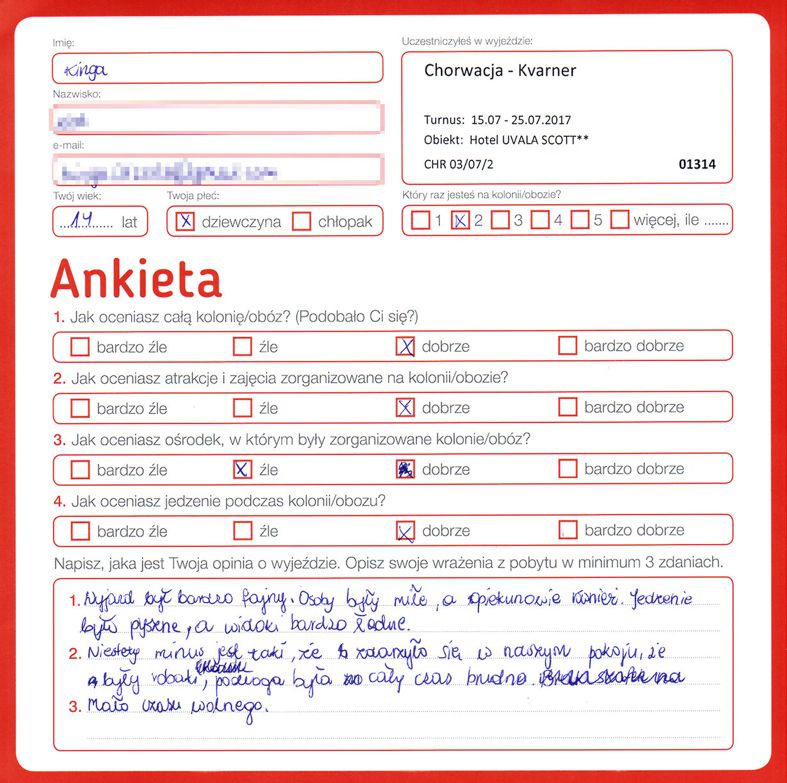 Imię:
Kinga
Nazwisko:
e-mail:
Twój wiek:
14 lat
Twoja płeć:
X dziewczyna
chłopak
Uczestniczyłeś w wyjeździe:
Chorwacja - Kvarner
Turnus: 15.07 - 25.07.2017
Obiekt: Hotel UVALA SCOTT**
CHR 03/07/2
01314
Który raz jesteś na kolonii/obozie?
1 X 2 3 4 5 więcej, ile .......
Ankieta
1. Jak oceniasz całą kolonię/obóz? (Podobało Ci się?)
bardzo źle źle X dobrze bardzo dobrze
2. Jak oceniasz atrakcje i zajęcia zorganizowane na kolonii/obozie?
bardzo źle źle X dobrze bardzo dobrze
3. Jak oceniasz ośrodek, w którym były zorganizowane kolonie/obóz?
bardzo źle X źle dobrze bardzo dobrze
4. Jak oceniasz jedzenie podczas kolonii/obozu?
bardzo źle źle X dobrze bardzo dobrze
Napisz, jaka jest Twoja opinia o wyjeździe. Opisz swoje wrażenia z pobytu w minimum 3 zdaniach.
1. Wyjazd był bardzo fajny. Osoby były miłe, a opiekunowie również. Jedzenie
było pyszne, a widoki bardzo ładne.
2. Niestety minus jest taki, że zdarzyło się w naszym pokoju, że
były robaki, podłoga była cały czas brudna
3. Mało czasu wolnego.